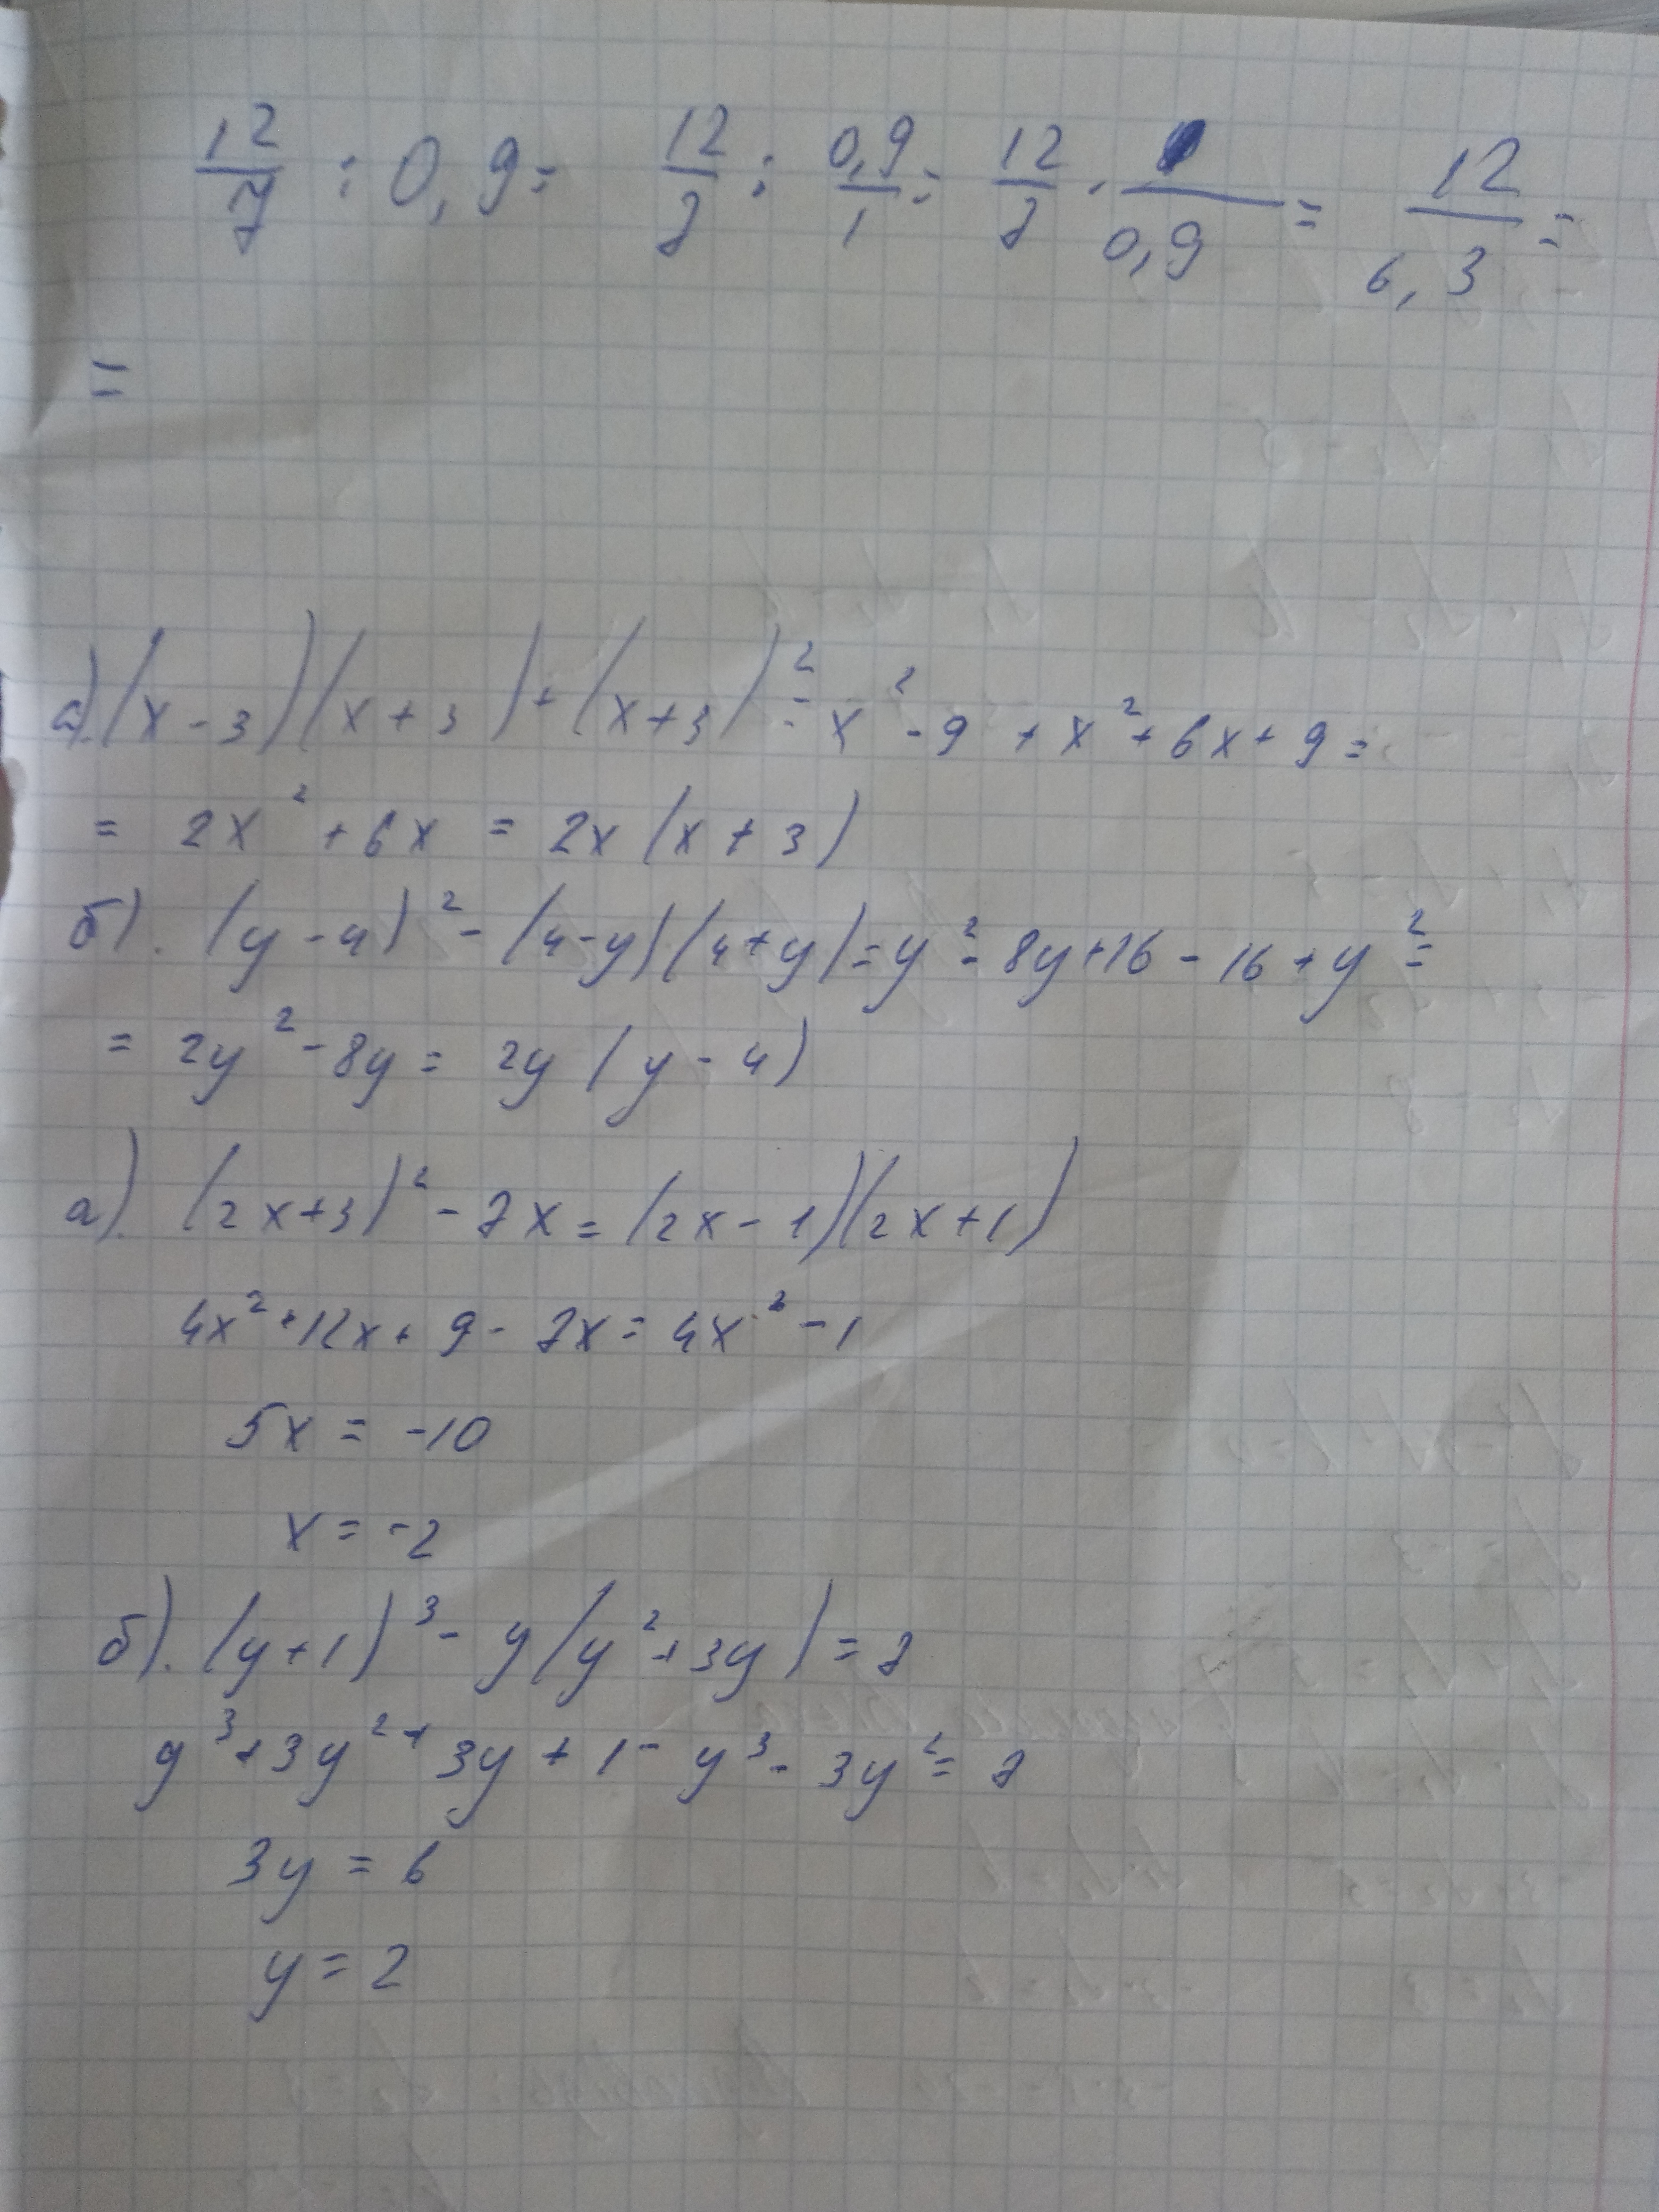 12/7 : 0,9 = 12/7 : 0,9/1 = 12/7 · 1/0,9 = 12/6,3 =
=
а). (x - 3)(x + 3) + (x + 3)² = x² - 9 + x² + 6x + 9 =
= 2x² + 6x = 2x (x + 3)
б). (y - 4)² - (4 - y)(4 + y) = y² - 8y + 16 - 16 + y² =
= 2y² - 8y = 2y (y - 4)
а). (2x + 3)² - 7x = (2x - 1)(2x + 1)
4x² + 12x + 9 - 7x = 4x² - 1
5x = -10
x = -2
б). (y + 1)³ - y (y² + 3y) = 7
y³ + 3y² + 3y + 1 - y³ - 3y² = 7
3y = 6
y = 2